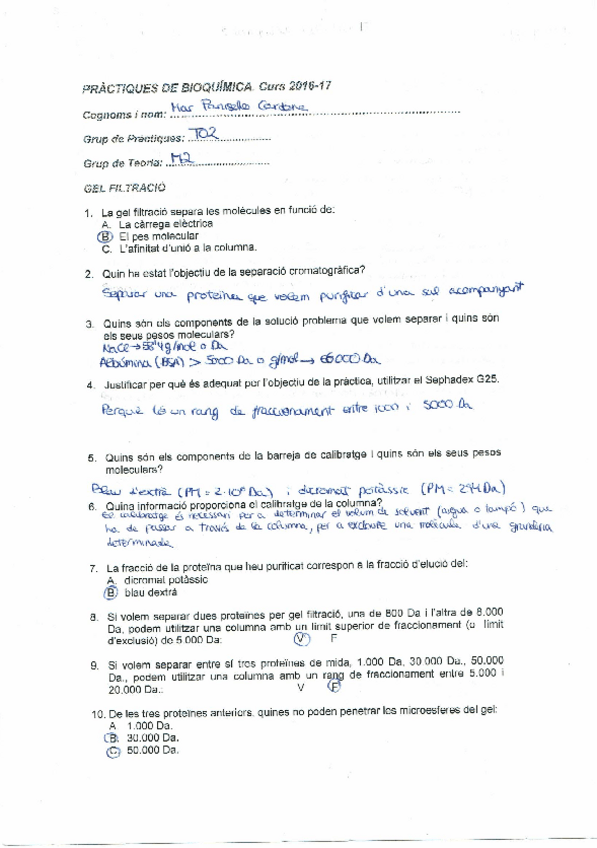 PRÀCTIQUES DE BIOQUÍMICA. Curs 2016-17
Cognoms i nom: Mar Cardona
Grup de Pràctiques: TO2
Grup de Teoria: M2
GEL FILTRACIÓ
1. La gel filtració separa les molècules en funció de:
A. La càrrega elèctrica
B. El pes molecular
C. L'afinitat d'unió a la columna.
2. Quin ha estat l'objectiu de la separació cromatogràfica?
Separar una proteïna que volem purificar d'una sal acompanyant
3. Quins són els components de la solució problema que volem separar i quins són
els seus pesos moleculars?
NaCl → 58'4 g/mol o Da
Albúmina (BSA) > 5000 Da o g/mol → 66000 Da
4. Justificar per què és adequat per l'objectiu de la pràctica, utilitzar el Sephadex G25.
Perquè té un rang de fraccionament entre 1000 i 5000 Da
5. Quins són els components de la barreja de calibratge i quins són els seus pesos
moleculars?
Blau d'extrà (PM = 2·10⁶ Da) i dicromat potàssic (PM = 294 Da)
6. Quina informació proporciona el calibratge de la columna?
El calibratge és necessari per a determinar el volum de solvent (aigua o tampó) que
ha de passar a través de la columna, per a excloure una molècula d'una grandària
determinada
7. La fracció de la proteïna que heu purificat correspon a la fracció d'elució del:
A. dicromat potàssic
B. blau dextrà
8. Si volem separar dues proteïnes per gel filtració, una de 800 Da i l'altra de 8.000
Da, podem utilitzar una columna amb un límit superior de fraccionament (o límit
d'exclusió) de 5.000 Da: V F
9. Si volem separar entre sí tres proteïnes de mida, 1.000 Da, 30.000 Da., 50.000
Da., podem utilitzar una columna amb un rang de fraccionament entre 5.000 i
20.000 Da.: V F
10. De les tres proteïnes anteriors, quines no poden penetrar les microesferes del gel:
A. 1.000 Da.
B. 30.000 Da.
C. 50.000 Da.